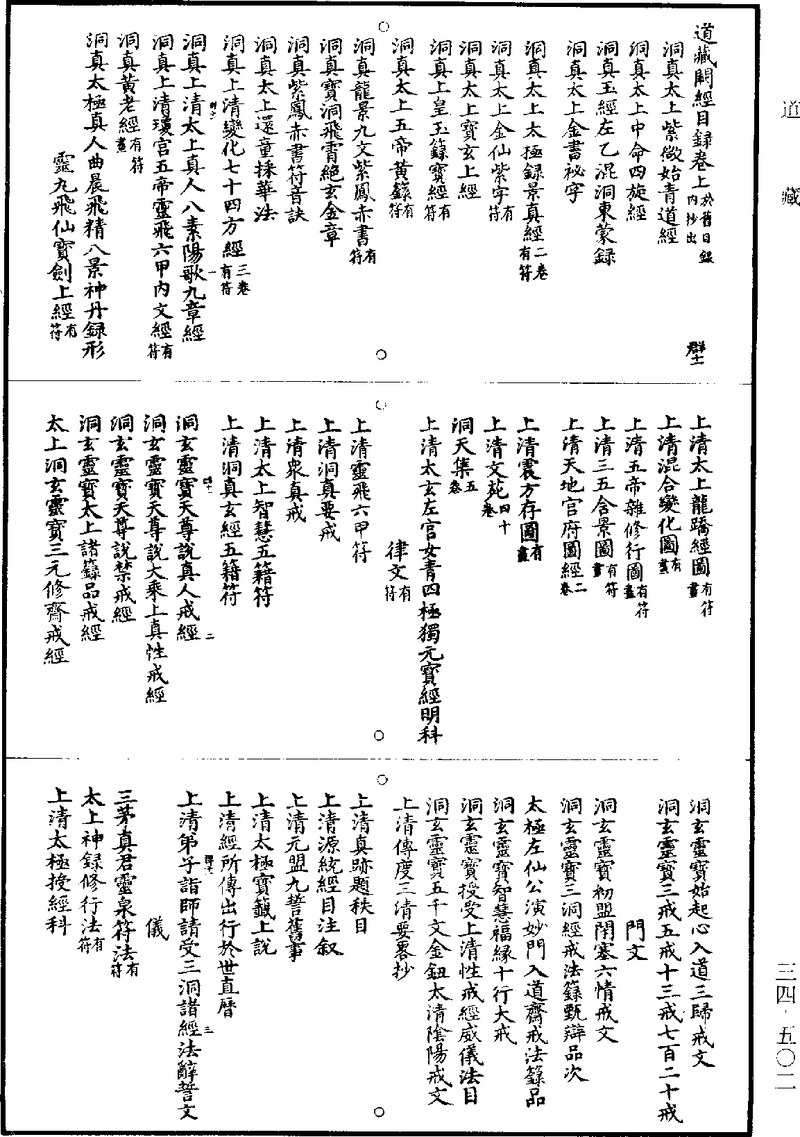 道藏
道藏闕經目錄卷上 於舊目錄內抄出 群十
洞真太上紫微始青道經
洞真太上中命四旋經
洞真玉經左乙混洞東蒙錄
洞真太上金書祕字
洞真太上太極錄景真經 二卷有符
洞真太上金仙紫字 有符
洞真太上寶玄上經
洞真上皇玉籙寶經 有符
洞真太上五帝黃籙 有符
洞真龍景九文紫鳳赤書 有符
洞真寶洞飛霄絕玄金章
洞真紫鳳赤書符音訣
洞真太上還童採華法
洞真上清變化七十四方經 三卷有符
洞真上清太上真人八素陽歌九章經 一
洞真上清瓊宮五帝靈飛六甲內文經 有符
洞真黃老經 有符畫
洞真太極真人曲晨飛精八景神丹錄形
靈九飛仙寶劍上經 有符
上清太上龍蹻經圖 有符畫
上清混合變化圖 有畫
上清五帝雜修行圖 有符畫
上清三五含景圖 有符畫
上清天地官府圖經 二卷
上清震方存圖 有畫
上清文苑 四十卷
洞天集 五卷
上清太玄左官女青四極獨元寶經明科
律文 有符
上清靈飛六甲符
上清洞真要戒
上清眾真戒
上清太上智慧五籍符
上清洞真玄經五籍符
洞玄靈寶天尊說真人戒經 二
洞玄靈寶天尊說大乘上真性戒經
洞玄靈寶天尊說禁戒經
洞玄靈寶太上諸籙品戒經
太上洞玄靈寶三元修齋戒經
洞玄靈寶始起心入道三歸戒文
洞玄靈寶三戒五戒十三戒七百二十戒
門文
洞玄靈寶初盟閉塞六情戒文
洞玄靈寶三洞經戒法籙甄辯品次
太極左仙公演妙門入道齋戒法籙品
洞玄靈寶智慧福緣十行大戒
洞玄靈寶授受上清性戒經威儀法目
洞玄靈寶五千文金鈕太清陰陽戒文
上清傳度三清要畧抄
上清真跡題秩目
上清源統經目注敘
上清元盟九誓舊事
上清太極寶籤上說
上清經所傳出行於世直曆
上清弟子詣師請受三洞諸經法辭誓文 三
儀
三茅真君靈泉符法 有符
太上神錄修行法 有符
上清太極授經科
三四·五〇二